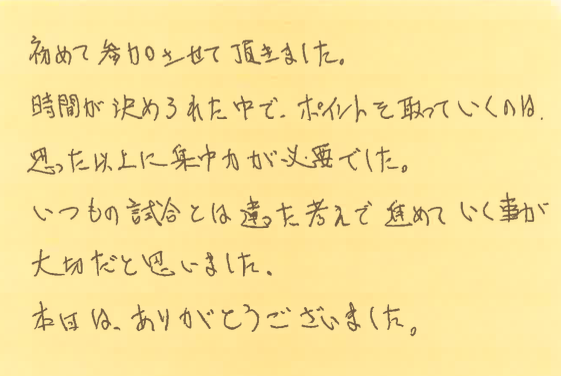 初めて参加させて頂きました。
時間が決められた中で、ポイントを取っていくのは、
思った以上に集中力が必要でした。
いつもの試合とは違った考えで進めていく事が
大切だと思いました。
本日は、ありがとうございました。